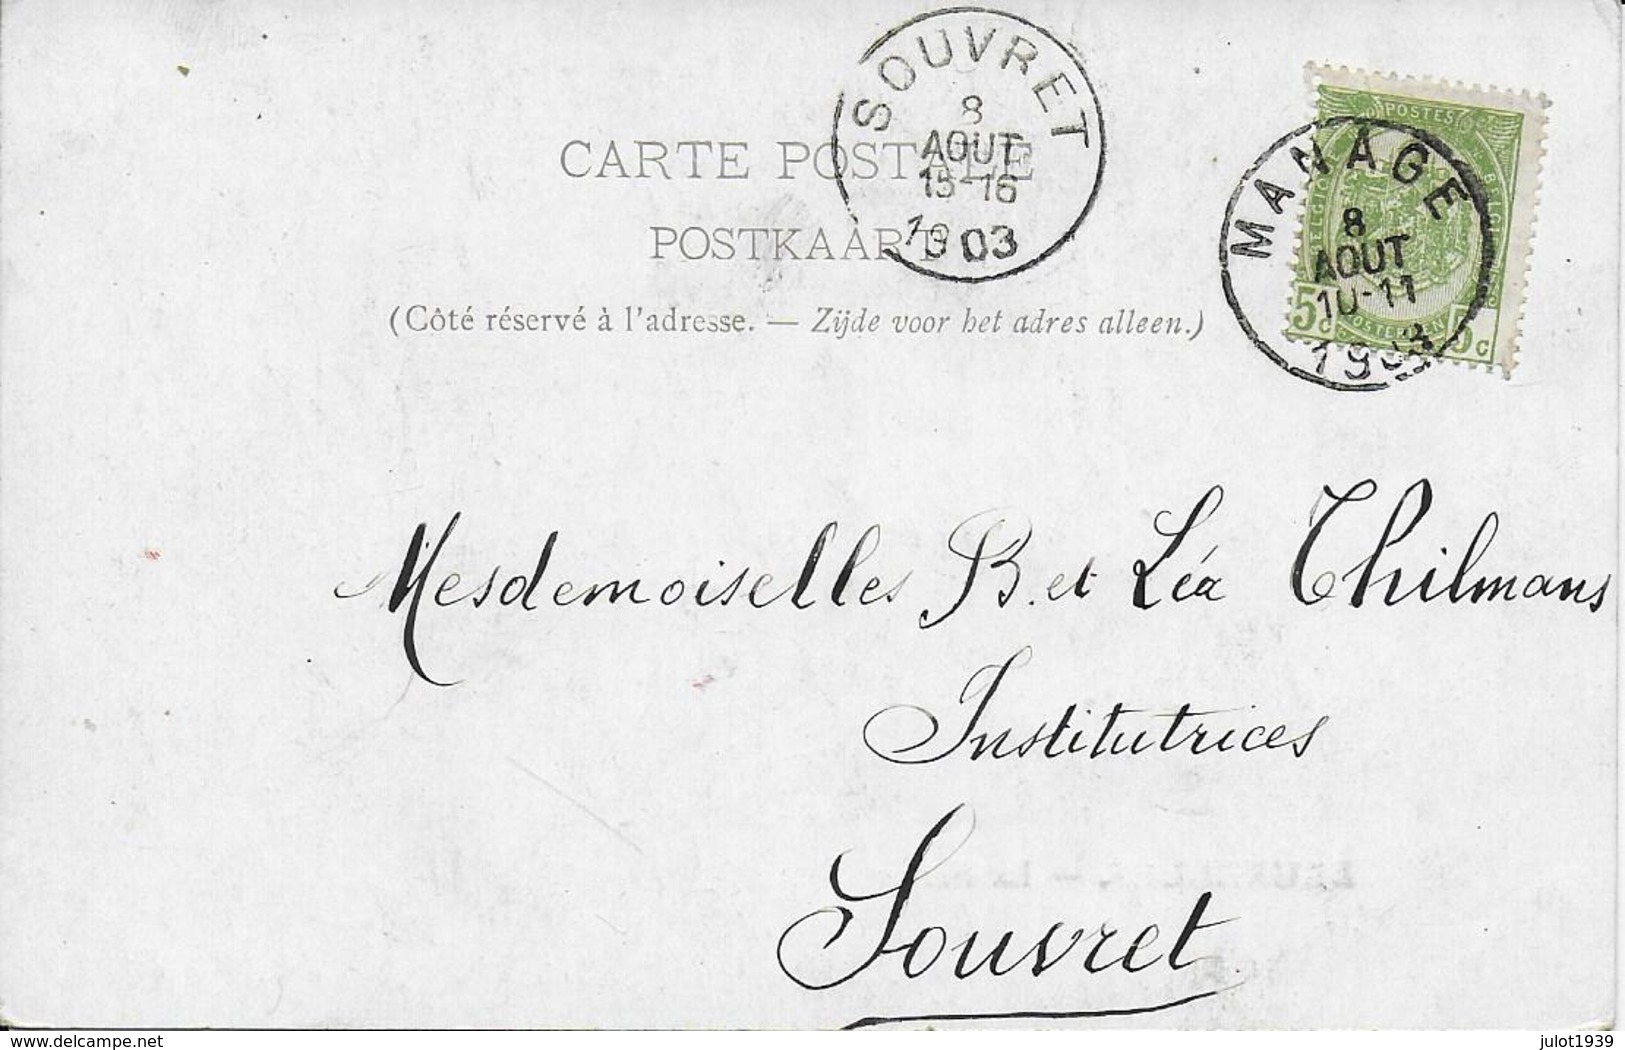 SOUVRET
8
AOUT
15-16
1903
POSTES
BELGIQUE
MANAGE
8
AOUT
10-11
1903
5c
5c
CARTE POSTALE
POSTKAART
(Côté réservé à l'adresse. — Zijde voor het adres alleen.)
Mesdemoiselles B. et Léa Thilmans
Institutrices
Souvret
delcampe.net
julot1939